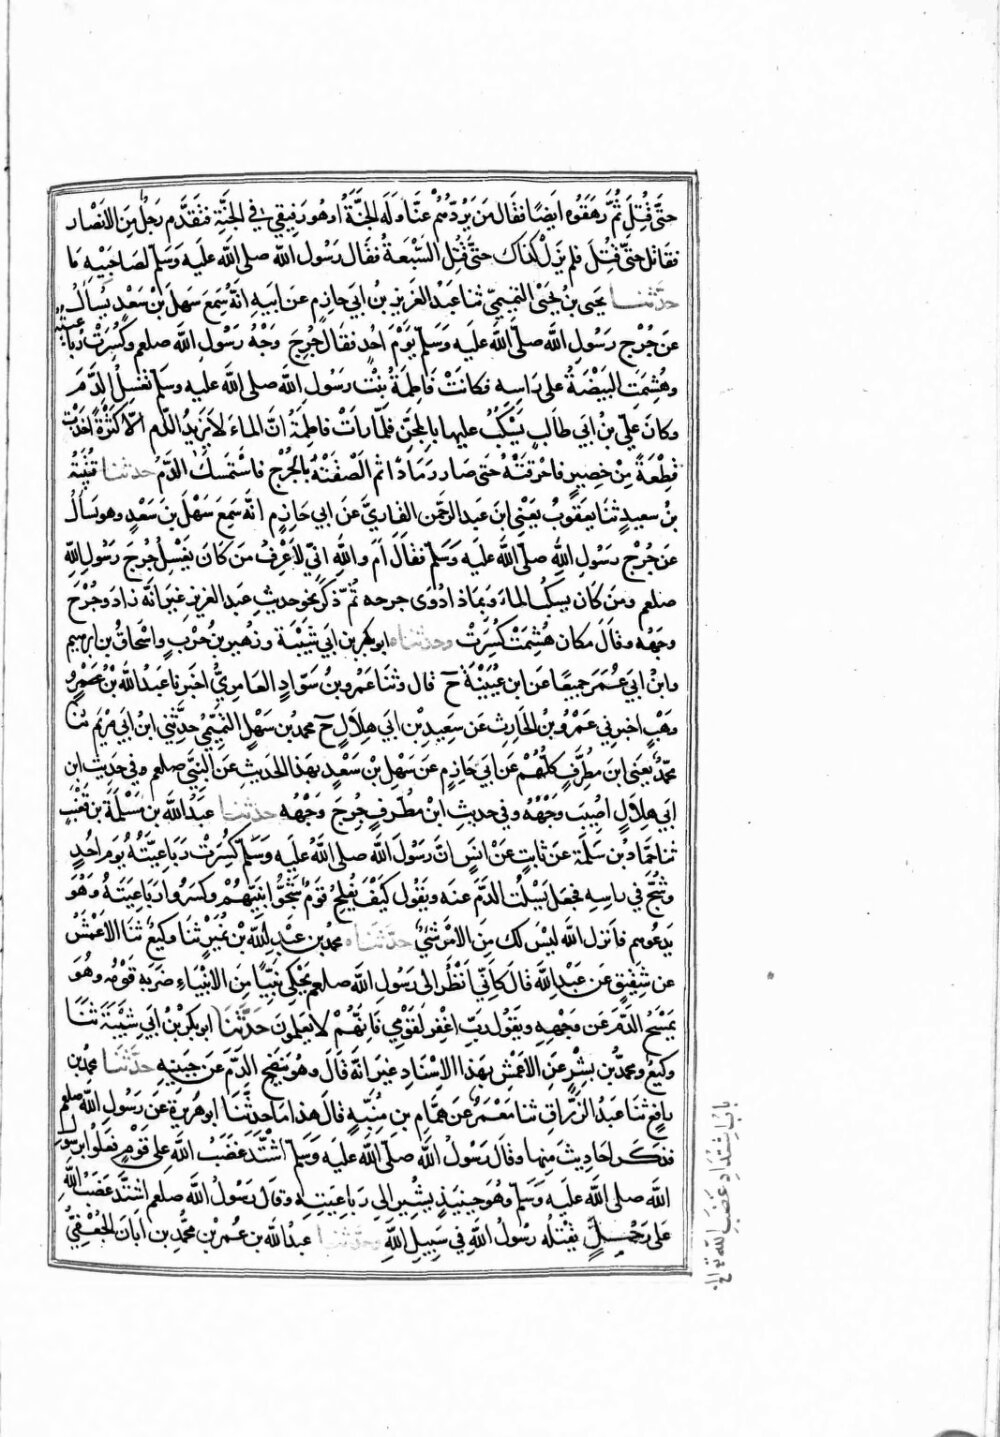 حتى قتل ثم رهقوه ايضا فقال من يردهم عنا وله الجنة او هو رفيقي في الجنة فتقدم رجل من الانصار
فقاتل حتى قتل فلم يزل كذاك حتى قتل السبعة فقال رسول الله صلى الله عليه وسلم لصاحبيه ما
حدثنا يحيى بن يحيى التميمي ثنا عبد العزيز بن ابي حازم عن ابيه انه سمع سهل بن سعد يسأل
عن جرح رسول الله صلى الله عليه وسلم يوم احد فقال جرح وجه رسول الله صلعم وكسرت رباعيته
وهشمت البيضة على راسه فكانت فاطمة بنت رسول الله صلى الله عليه وسلم تغسل الدم
وكان علي بن ابي طالب يسكب عليها بالمجن فلما رات فاطمة ان الماء لا يزيد الدم الا كثرة اخذت
قطعة من حصير فاحرقته حتى صار رمادا ثم الصقته بالجرح فاستمسك الدم حدثنا قتيبة
بن سعيد ثنا يعقوب يعني ابن عبد الرحمن القاري عن ابي حازم انه سمع سهل بن سعد وهو يسأل
عن جرح رسول الله صلى الله عليه وسلم فقال ام والله اني لاعرف من كان يغسل جرح رسول الله
صلعم ومن كان يسكب الماء وبماذا دووى جرحه ثم ذكر نحو حديث عبد العزيز غير انه زاد وجرح
وجهه وقال مكان هشمت كسرت وحدثناه ابو بكر بن ابي شيبة وزهير بن حرب واسحاق بن ابرهيم
وابن ابي عمر جميعا عن ابن عيينة ح قال وثنا عمرو بن سواد العامري اخبرنا عبد الله بن
وهب اخبرني عمرو بن الحارث عن سعيد بن ابي هلال ح محمد بن سهل التميمي حدثني ابن ابي مريم ثنا
محمد يعني ابن مطرف كلهم عن ابي حازم عن سهل بن سعد بهذا الحديث عن النبي صلعم وفي حديث ابن
ابي هلال اصيب وجهه وفي حديث ابن مطرف جرح وجهه حدثنا عبد الله بن مسلمة بن قعنب
ثنا حماد بن سلمة عن ثابت عن انس ان رسول الله صلى الله عليه وسلم كسرت رباعيته يوم احد
وشج في راسه فجعل يسلت الدم عنه ويقول كيف يفلح قوم شجوا نبيهم وكسروا رباعيته وهو
يدعوهم فانزل الله ليس لك من الامر شئ حدثناه محمد بن عبد الله بن نمير ثنا وكيع ثنا الاعمش
عن شقيق عن عبد الله قال كاني انظر الى رسول الله صلعم يحكي نبيا من الانبياء ضربه قومه وهو
يمسح الدم عن وجهه ويقول رب اغفر لقومي فانهم لا يعلمون حدثنا ابو بكر بن ابي شيبة ثنا
وكيع ومحمد بن بشر عن الاعمش بهذا الاسناد غير انه قال وهو ينضح الدم عن جبينه حدثنا محمد بن
رافع ثنا عبد الرزاق ثنا معمر عن همام بن منبه قال هذا ما حدثنا ابو هريرة عن رسول الله صلعم
فذكر احاديث منها وقال رسول الله صلى الله عليه وسلم اشتد غضب الله على قوم فعلوا برسول
الله صلى الله عليه وسلم وهو حينئذ يشير الى رباعيته وقال رسول الله صلعم اشتد غضب الله
على رجل يقتله رسول الله في سبيل الله وحدثنا عبد الله بن عمر بن محمد بن ابان الجعفي
باب اشتداد غضب الله